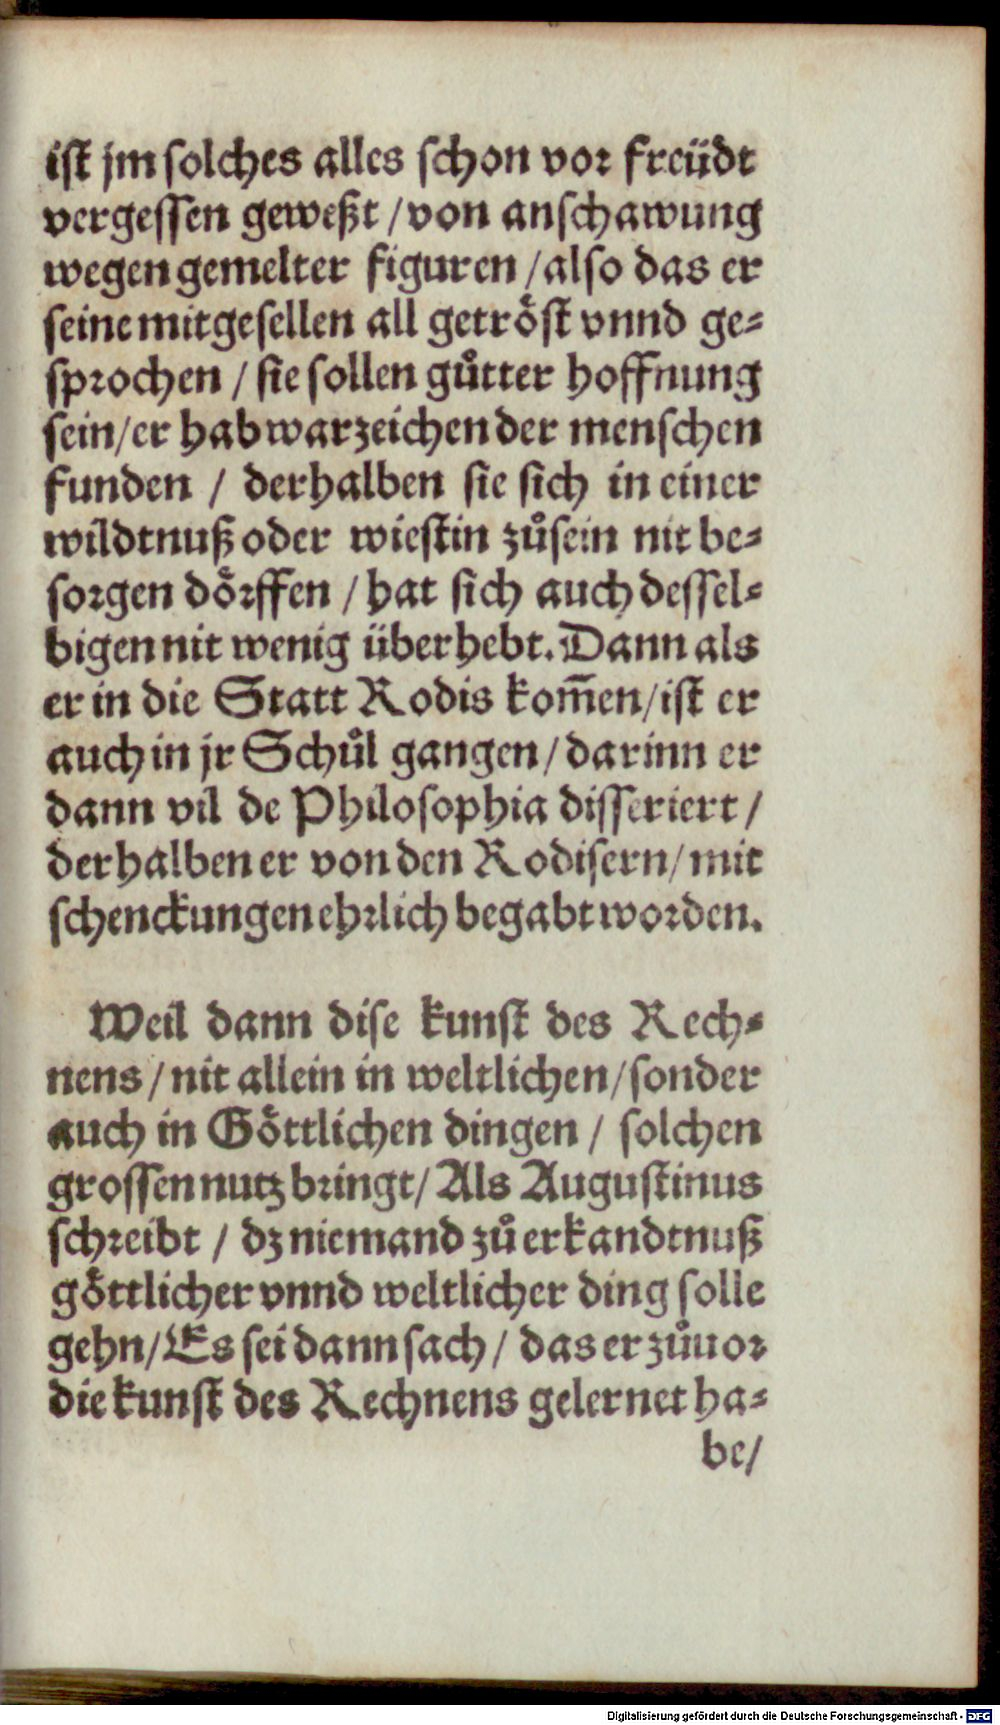 ist jm solches alles schon vor freüdt
vergessen geweßt / von anschawung
wegen gemelter figuren / also das er
seine mitgesellen all getröst vnnd ge-
sprochen / sie sollen gůtter hoffnung
sein / er hab warzeichen der menschen
funden / derhalben sie sich in einer
wildtnuß oder wiestin zůsein nit be-
sorgen dörffen / hat sich auch dessel-
bigen nit wenig überhebt. Dann als
er in die Statt Rodis kom̃en / ist er
auch in jr Schůl gangen / darinn er
dann vil de Philosophia disseriert /
derhalben er von den Rodisern / mit
schenckungen ehrlich begabt worden.
Weil dann dise kunst des Rech-
nens / nit allein in weltlichen / sonder
auch in Göttlichen dingen / solchen
grossen nutz bringt / Als Augustinus
schreibt / dz niemand zů erkandtnuß
göttlicher vnnd weltlicher ding solle
gehn / Es sei dann sach / das er zůuor
die kunst des Rechnens gelernet ha-
be /
Digitalisierung gefördert durch die Deutsche Forschungsgemeinschaft - DFG